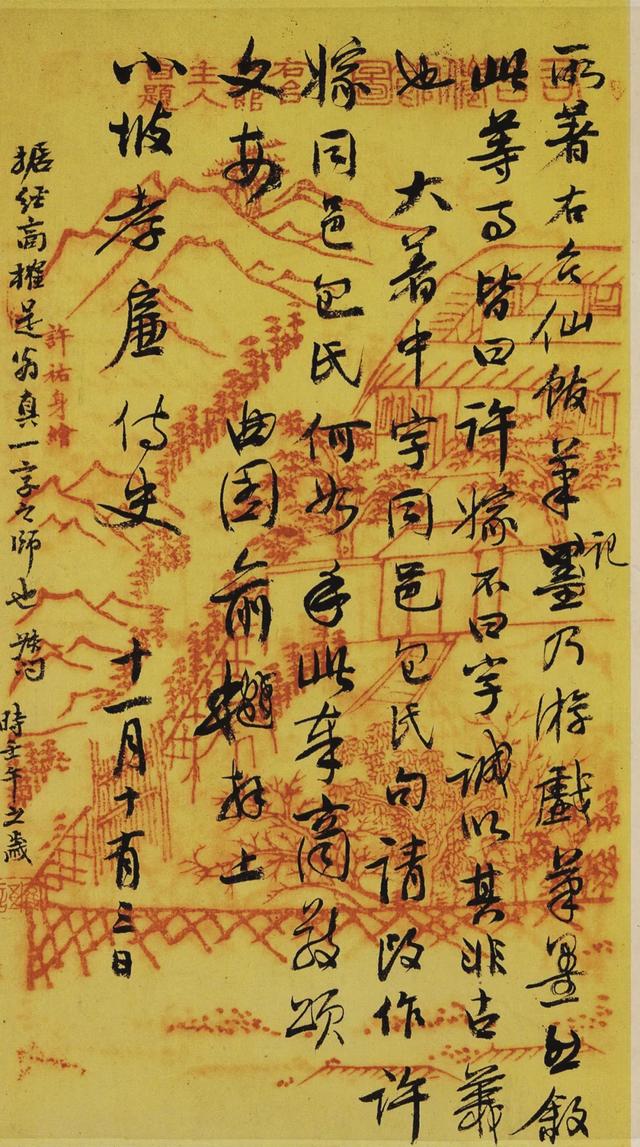 所著右台仙館筆記墨乃游戲筆墨然敘
此等事皆曰許嫁不曰字誠以其非古義
也 大著中字同邑包氏句請改作許
嫁同邑包氏何如手此奉商敬頌
文安 曲園前 拜上
小坡孝廉侍史 十一月十有三日
據經商榷是翁真一字之師也 時壬午之歲
右台 館 主人 自題
許祐身繪